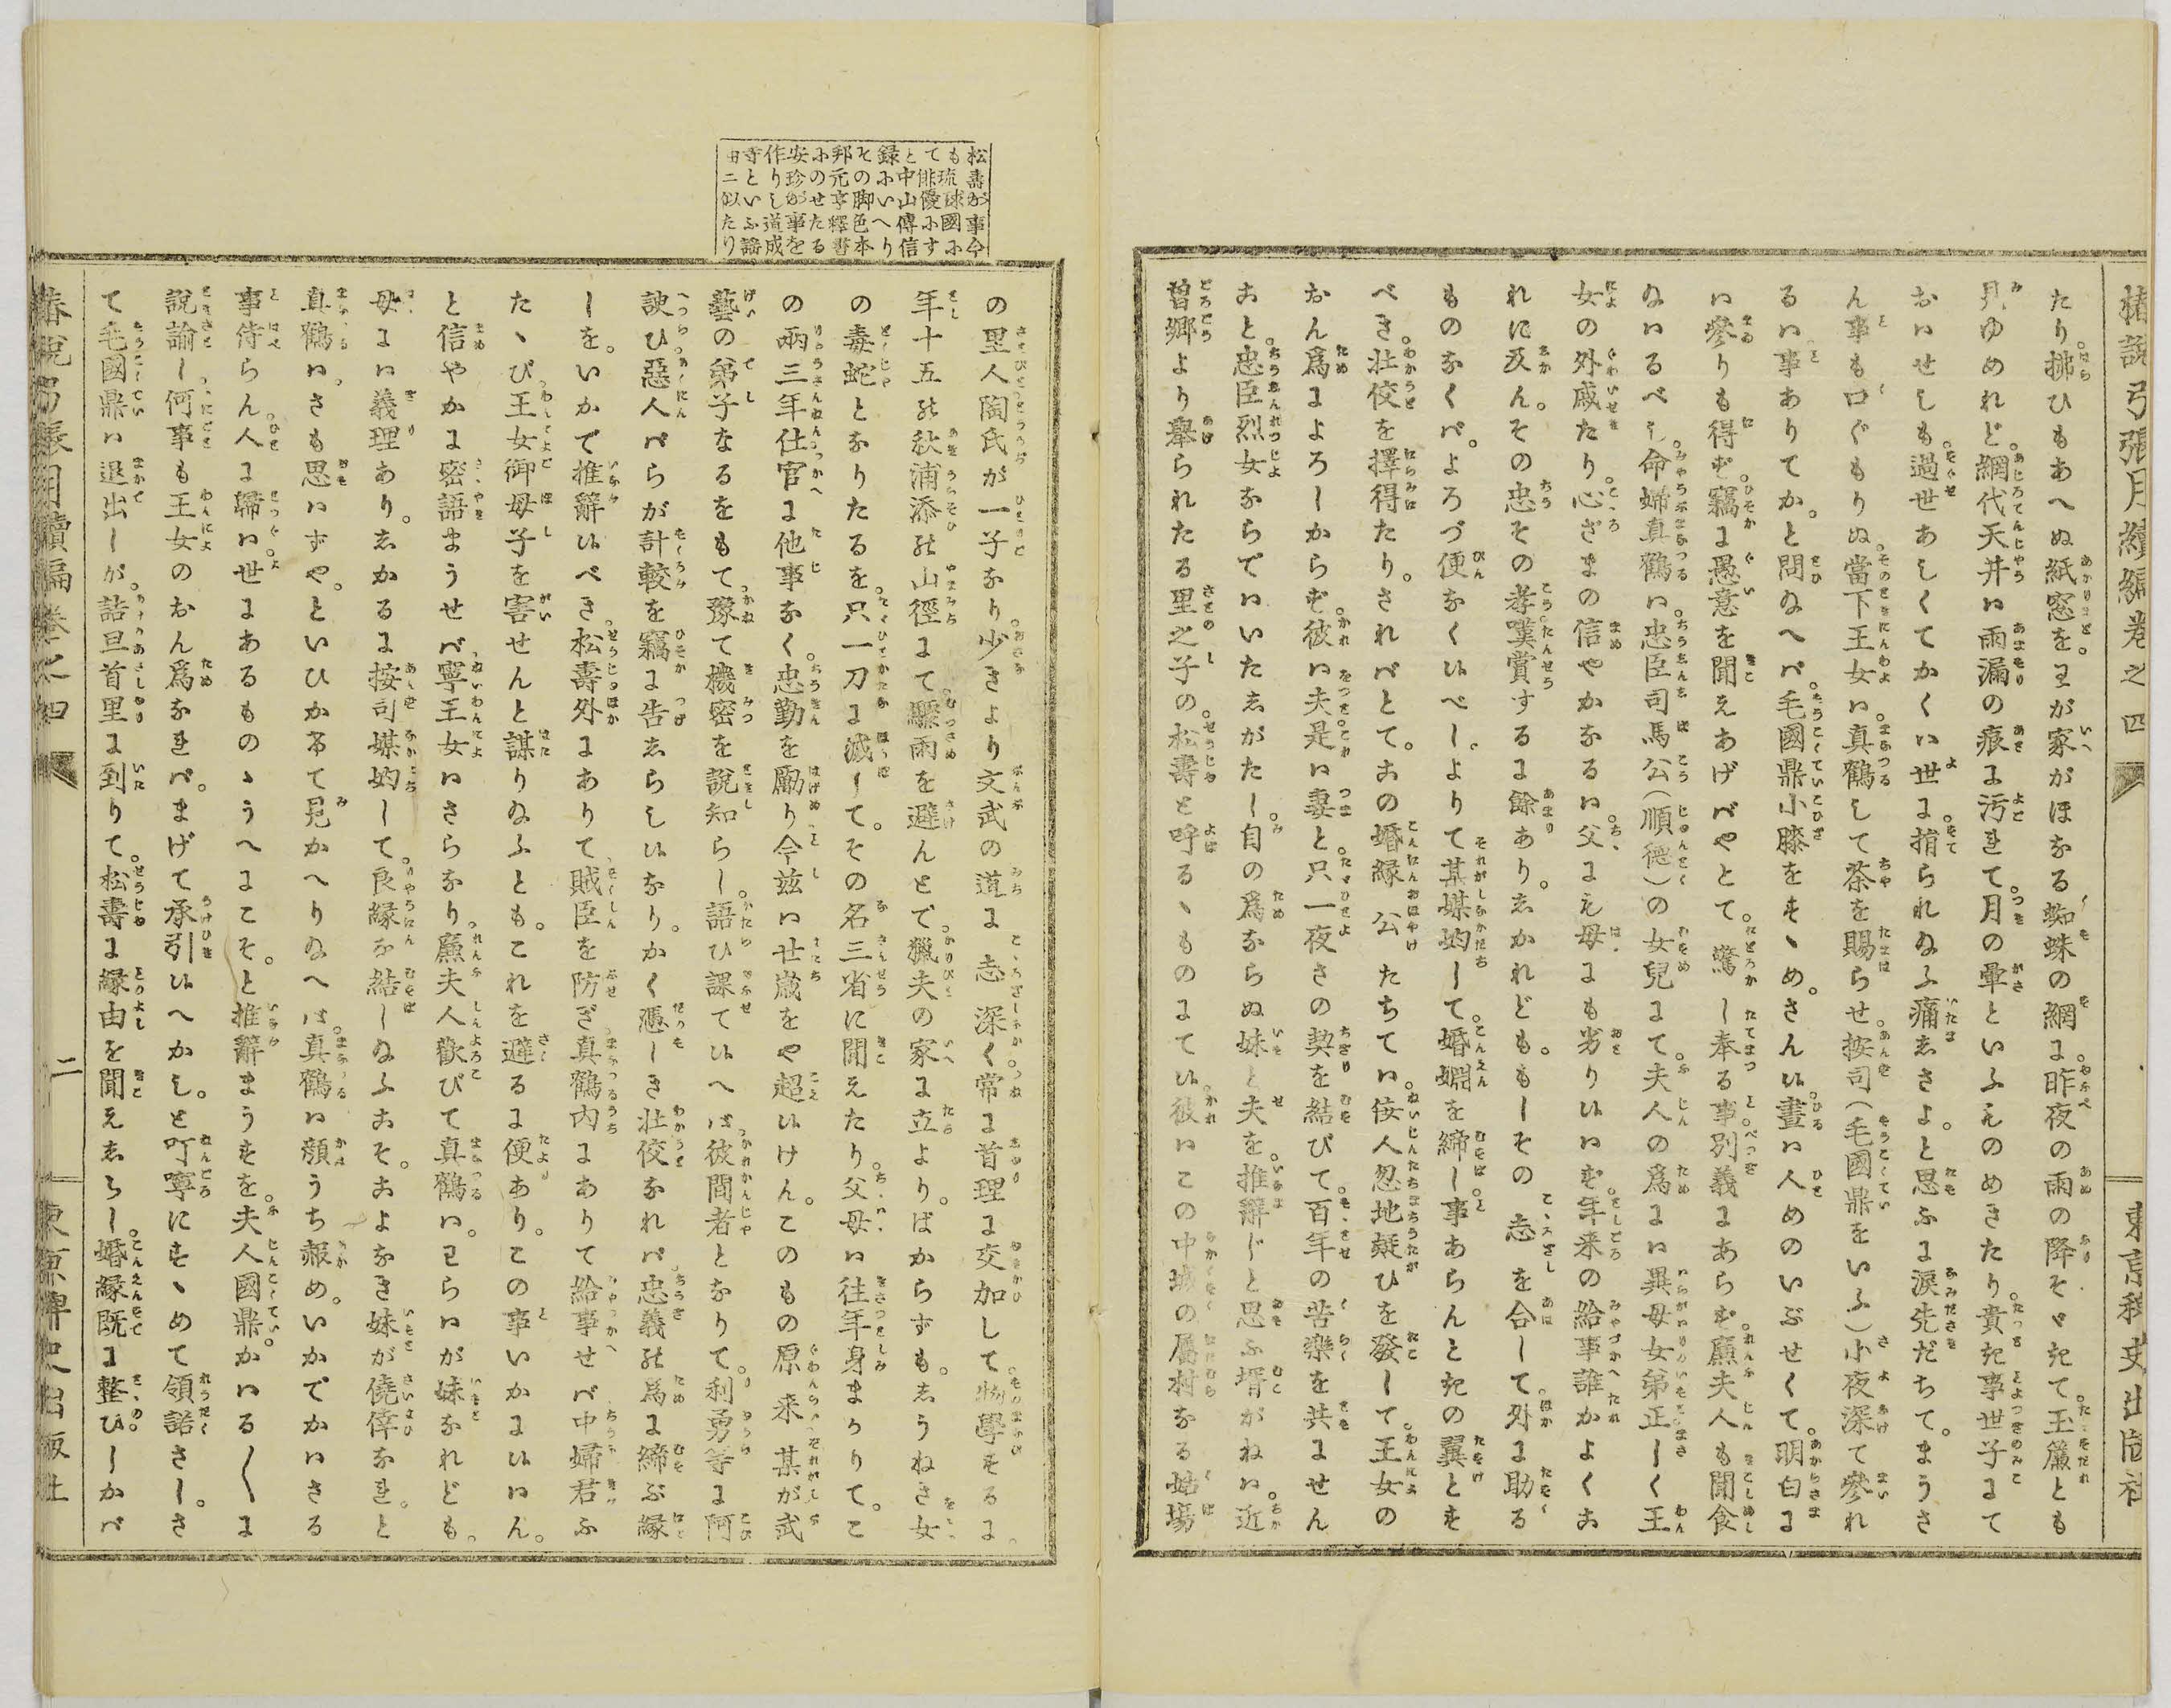 椿説弓張月續編卷之四
東京稗史出版社
たり。拂ひもあへぬ紙窓を。王が家がほなる蜘蛛の網に。昨夜の雨の降そゝきて。玉簾とも
見ゆめれど。網代天井ハ雨漏の痕に汚れて。月の暈といふものめきたり。貴き事世子にて
おハせしも。過世あしくてかくハ世に捐られ給ふ痛ましさよ。と思ふに涙先だちて。まうさ
ん事も口ぐもりぬ。當下王女ハ。真鶴して茶を賜らせ。按司(毛國鼎をいふ)小夜深て參れ
るハ事ありてか。と問給へバ。毛國鼎小膝をすゝめ。さん候。晝ハ人めのいぶせくて。明白に
ハ參りも得ず。竊に愚意を聞えあげバやとて。驚し奉る事。別義にあらず。廉夫人も聞食
給ハるべし。命婦真鶴ハ。忠臣司馬公(順德)の女兒にて。夫人の爲にハ異母女弟。正しく王
女の外戚たり。心ざまの信やかなるハ。父にも母にも劣り候ハず。年來の給事誰かよくこ
れに及ん。その忠その孝嘆賞するに餘あり。しかれども。もしその志を合して。外に助る
ものなくバ。よろづ便なく候べし。よりて某媒妁して。婚姻を締し事あらんときの翼とす
べき。壮佼を擇得たり。されバとて。この婚縁公たちてハ。佞人忽地疑ひを發して。王女の
おん爲によろしからず。彼ハ夫是ハ妻と。只一夜さの契を結びて。百年の苦樂を共にせん
こと。忠臣烈女ならでハいたしがたし。自の爲ならぬ妹と夫を。推辭じと思ふ壻がねハ。近
曽郷より擧られたる里之子の。松壽と呼るゝものにて候。彼ハこの中城の屬村なる姑場
松壽が事今
も琉球國に
て俳優にす
と中山傳信
録にいへり
その脚色本
邦元亨釋書
にのせたる
安珍が事を
作りし道成
寺といふ謡
曲ニ似たり
の里人陶氏が一子なり。少きより文武の道に志深く。常に首理に交加して。物學するに。
年十五の秋浦添の山徑にて。驟雨を避んとて。獵夫の家に立より。ばからずも。しうねき女
の毒蛇となりたるを。只一刀に滅して。その名三省に聞えたり。父母ハ往年身まかりて。こ
の兩三年仕官に他事なく。忠勤を勵り。今茲ハ廿歳をや超候けん。このもの原來某が武
藝の弟子なるをもて。豫て機密を説知らし。語ひ課て候へバ。彼間者となりて。利勇等に阿
諛ひ。惡人バらが計較を竊に告しらし候なり。かく憑しき壮佼なれバ。忠義の爲に締ぶ縁
しを。いかで推辭候べき。松壽外にありて。賊臣を防ぎ。真鶴内にありて給事せバ。中婦君ふ
たゝび。王女御母子を害せんと謀り給ふとも。これを避るに便あり。この事いかに候ハん。
と信やかに密語まうせバ。寧王女ハさらなり。廉夫人歡びて。真鶴ハ。わらハが妹なれども。
母にハ義理あり。しかるに按司媒妁して。良縁を結し給ふこそ。こよなき妹が僥倖なれ。と
真鶴ハ。さも思ハずや。といひかけて見かへり給へバ。真鶴ハ顔うち赧め。いかでかハさる
事侍らん。人に歸ハ世にあるものゝうへにこそ。と推辭まうすを。夫人國鼎。かハる〲に
説諭し。何事も王女のおん爲なれバ。まげて承引候へかし。と叮寧にすゝめて領諾さし。さ
て毛國鼎ハ退出しが。詰旦首里に到りて。松壽に縁由を聞えしらし。婚縁既に整ひしかバ
椿説弓張月續編卷之四
二
東京稗史出版社